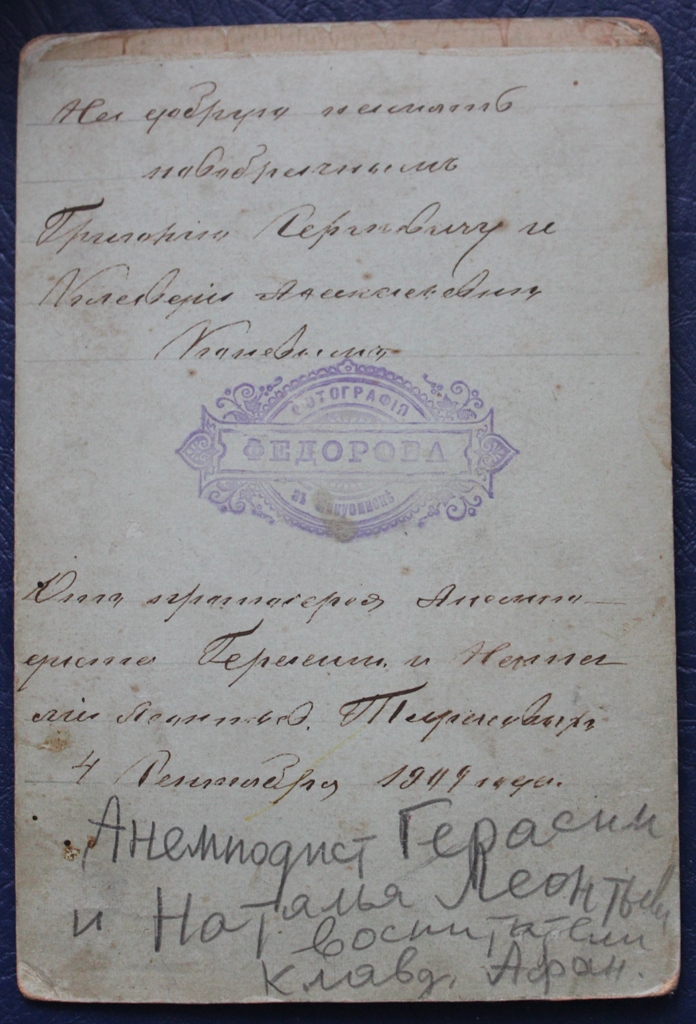 На добрую память
новобрачнымъ
Григорію Сергѣевичу и
Клавдіи
ФОТОГРАФІЯ
ФЕДОРОВА
Отъ протоіерея Анемпо-
диста Герасим. и Ната
ліи Леонтьев.
4 Сентября года.
Анемподист Герасим
и Наталья Леонтьев
воспитатели
Клавд. Афан.